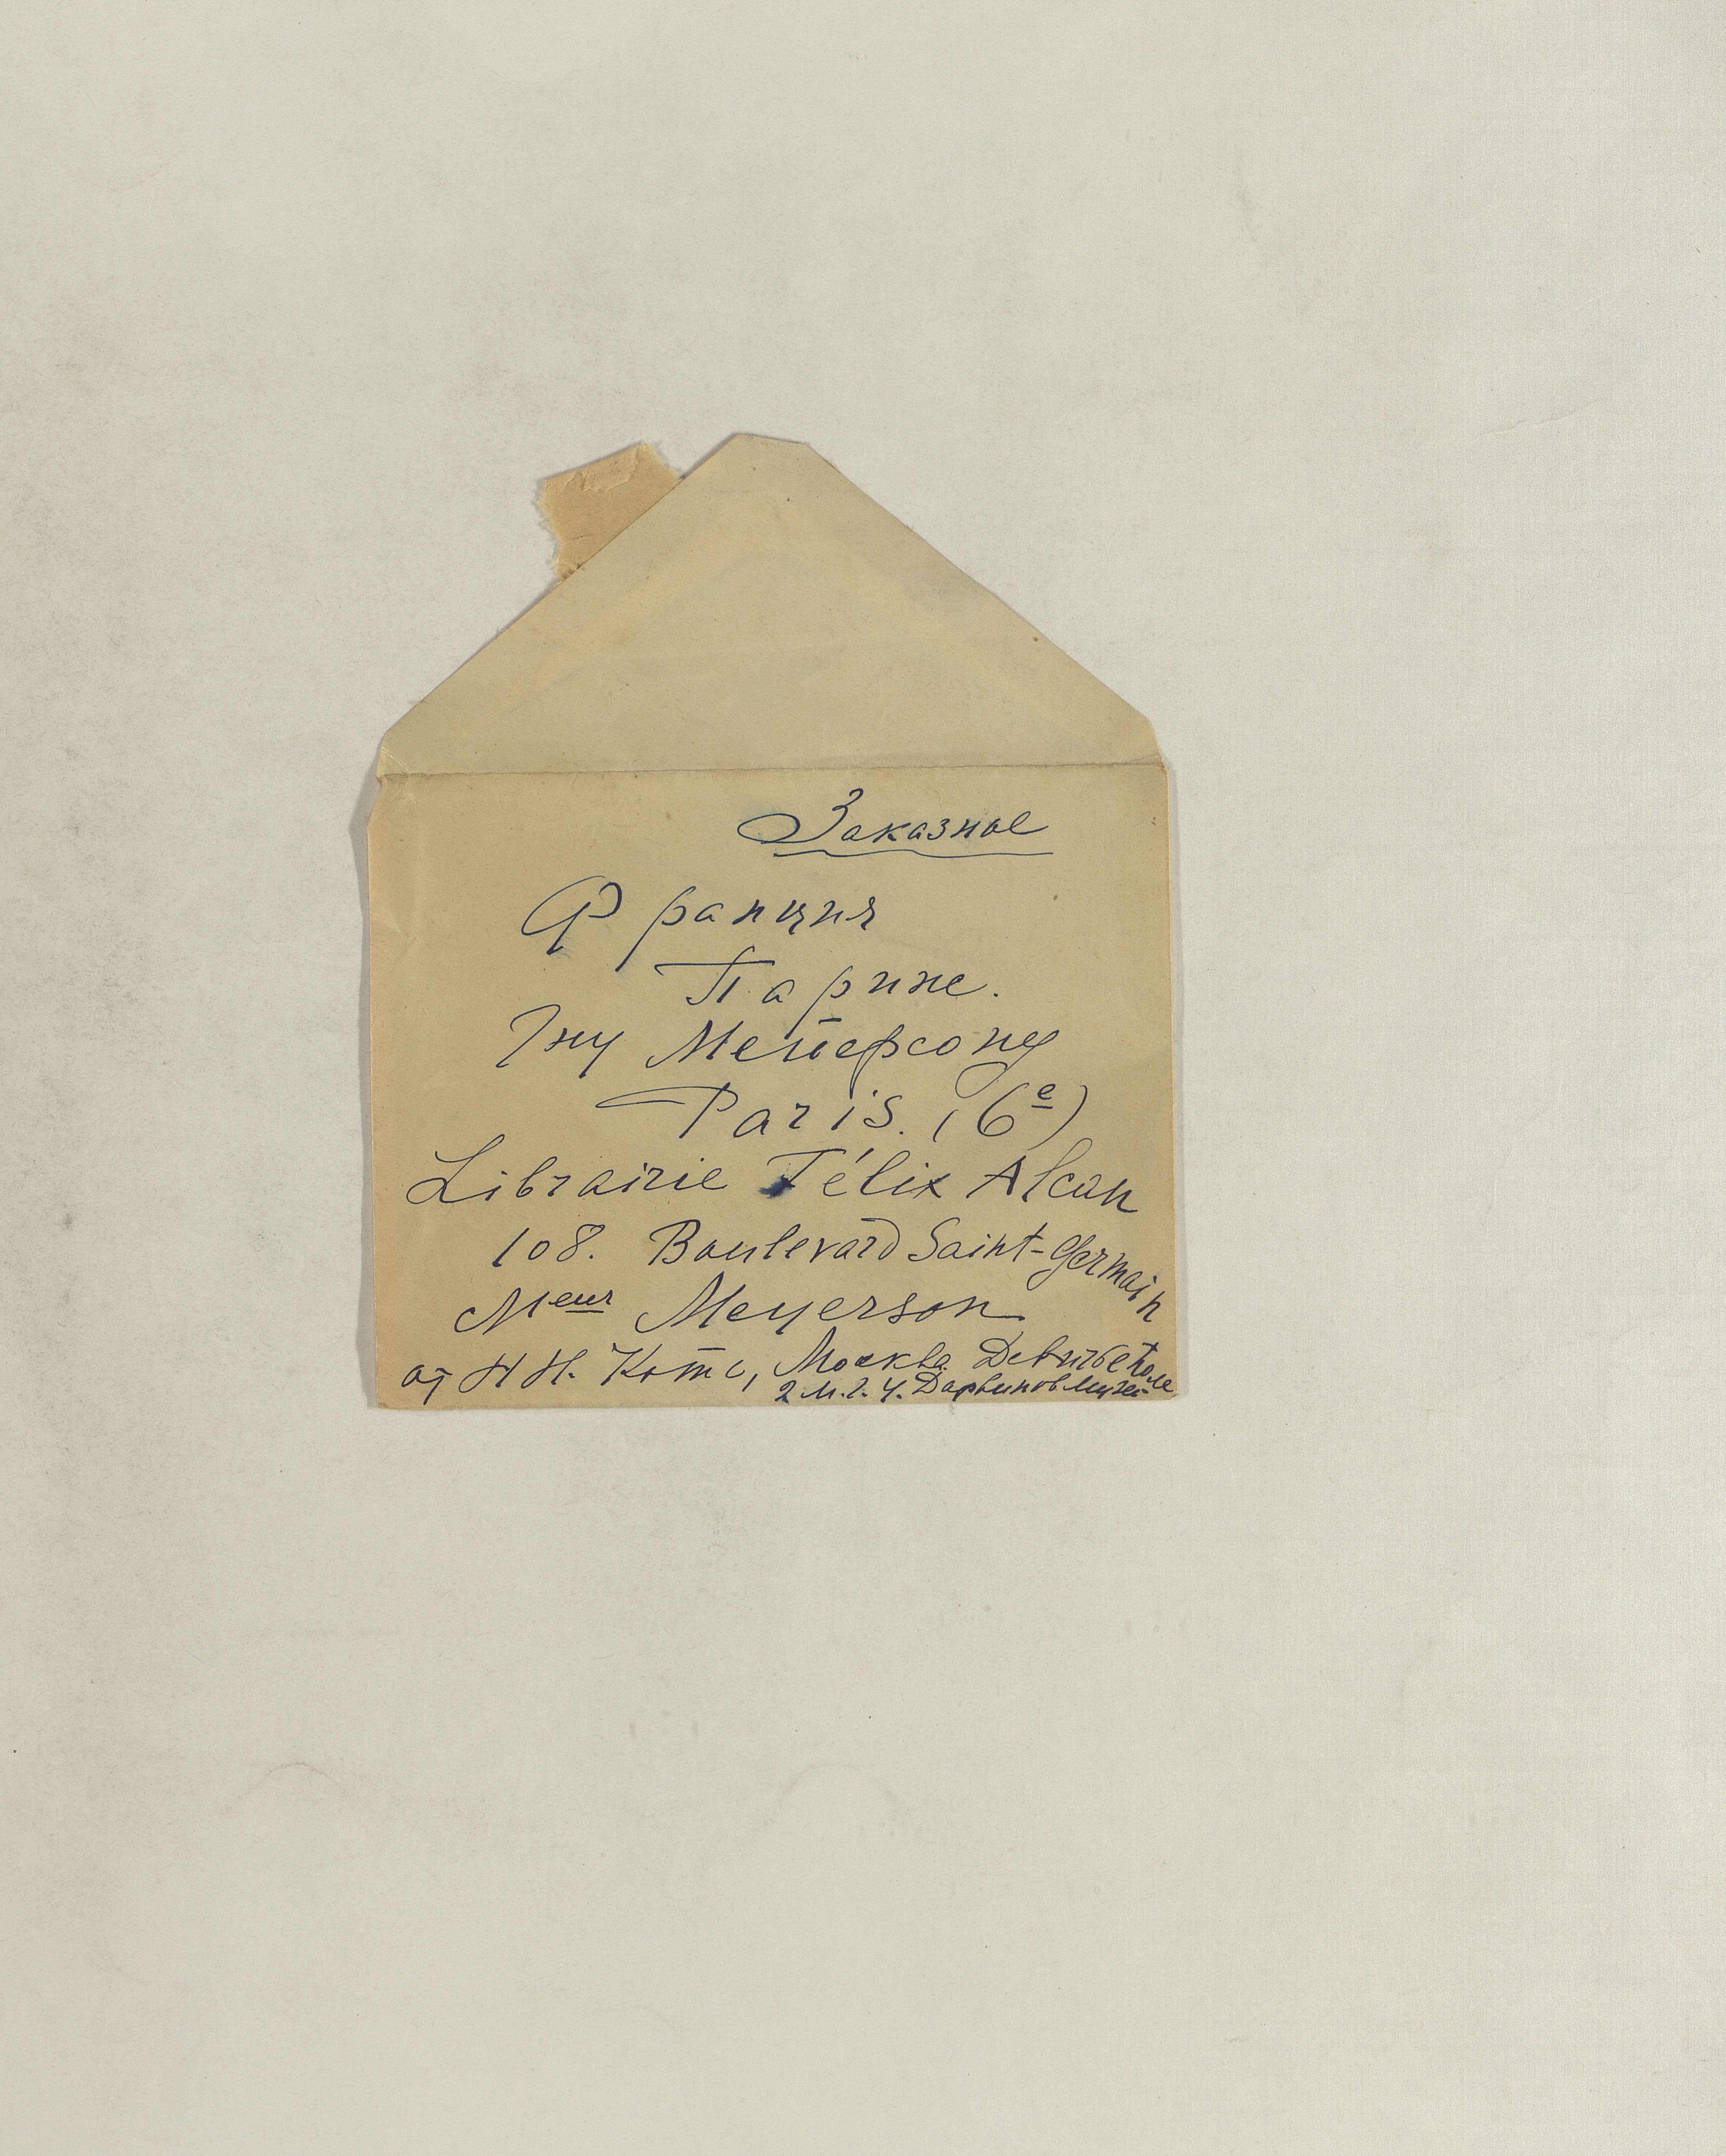 Заказное
Франция
Париж.
Гну Мейерсону
Paris. (6e)
Librairie Félix Alcan
108. Boulevard Saint-Germain
Meur Meyerson
от Н Н. Котс, Москва Девичье Поле
2 М.Г.У. Дарвинов Музей